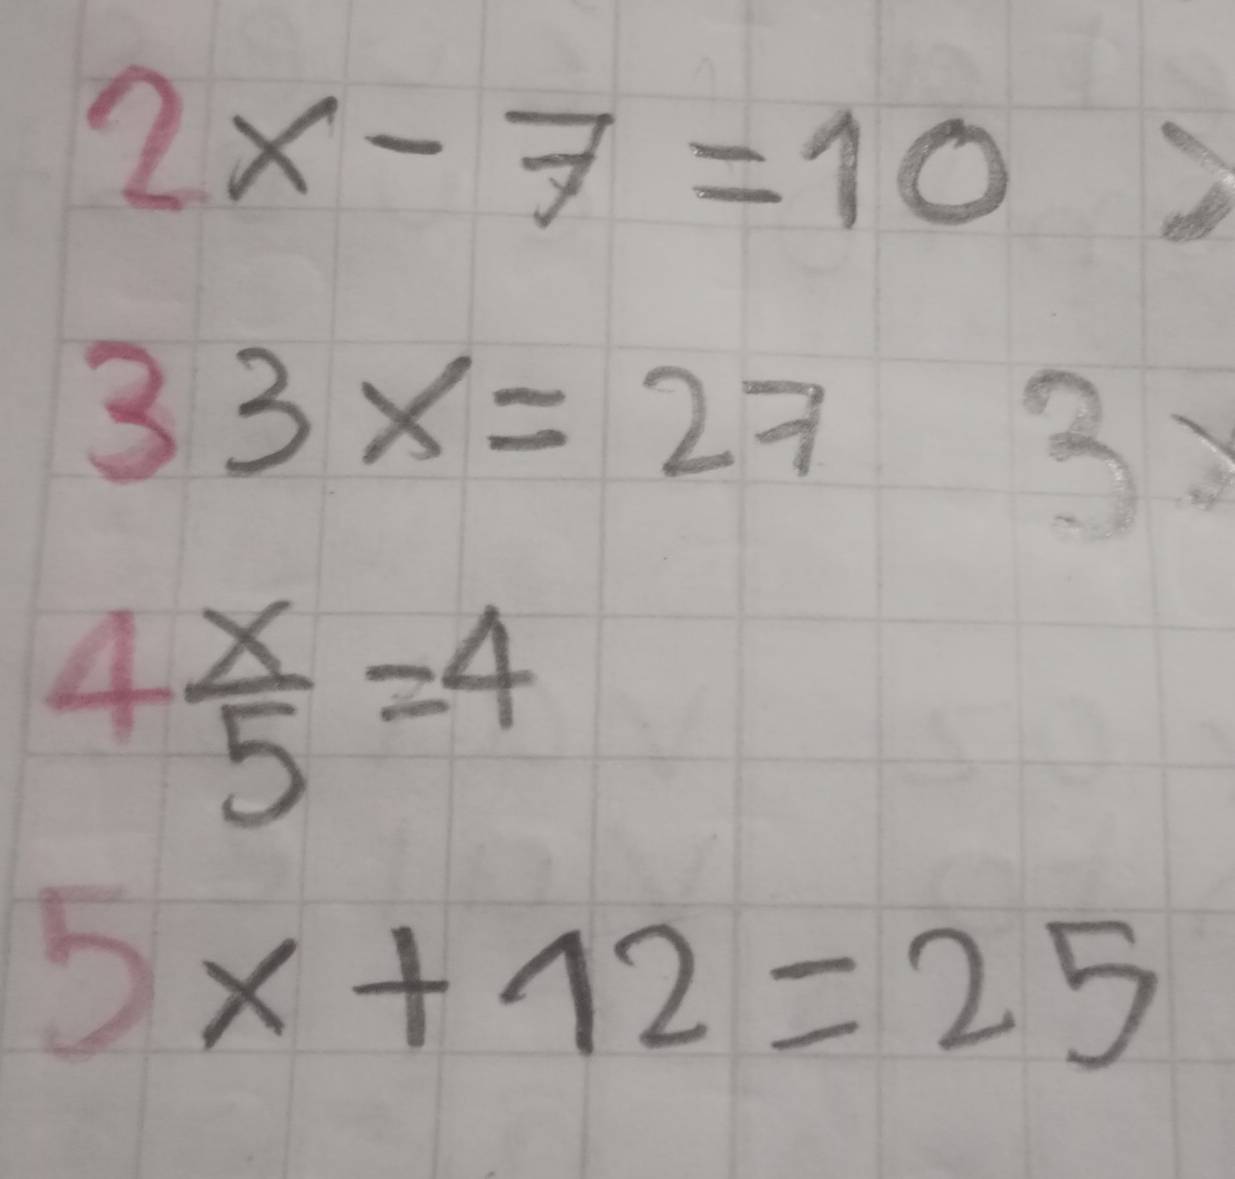 2 x - 7 = 10
3 3x = 27 3
4 x/5 = 4
5 x + 12 = 25